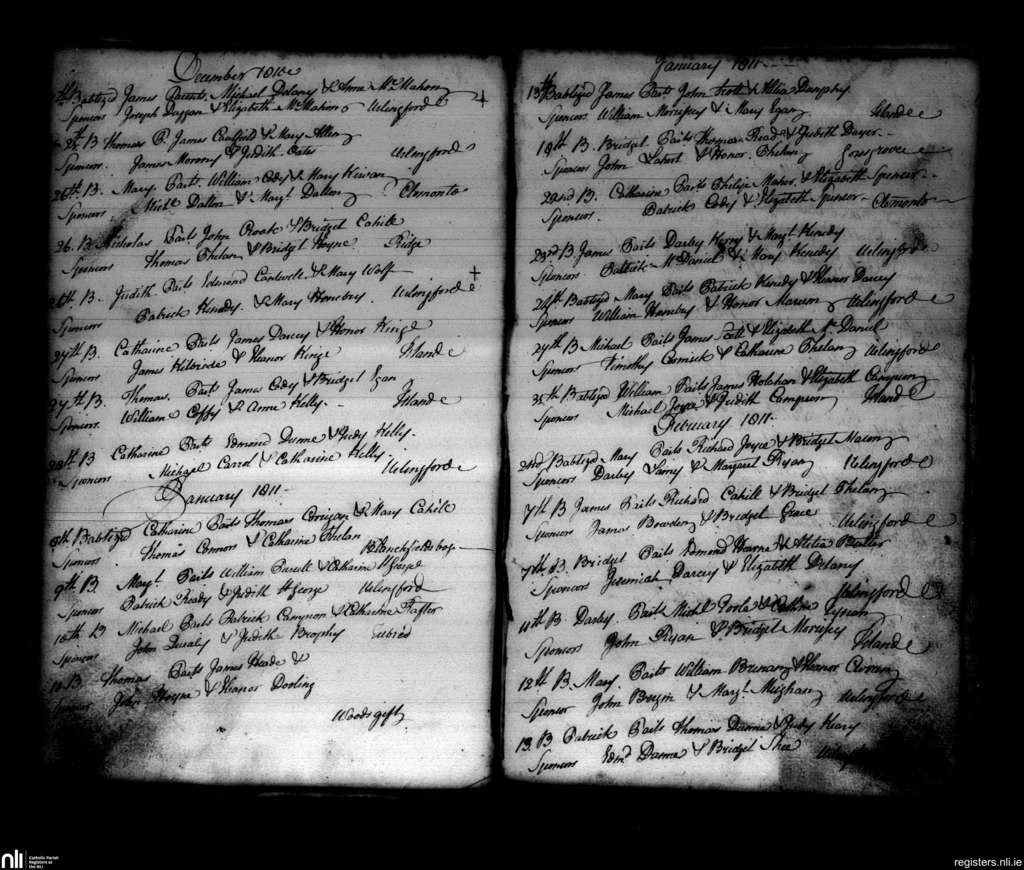 December 1810
Babtizd James Parents Michael Delany & Anne McMahon
Sponcors Joseph Duggan & Elizabeth McMahon Urlingford
25th B Thomas P. James Caulfield & Mary Allen
Sponcors James Morony & Judith Oates Urlingford
26th B. Mary Parts William Cody & Mary Kirwan
Sponcors Michl Dalton & Margt Dalton Clomonto
26. B. Nicholas Parts John Roak & Bridget Cahill
Sponcors Thomas Phelan & Bridgt Hoyne Ridge
26th B. Judith Parts Edmond Cantwell & Mary Wolf
Sponcors Patrick Kenedy & Mary Hornbry Urlingford
27th B. Catharine Parts James Darcey & Honor Kinge
Sponcors James Kilbride & Eleanor Kinge Island
27th B. Thomas Parts James Cody & Bridget Egan
Sponcors William Coffy & Anne Kelly Island
28th B Catharine Parts Edmond Dunne & Judy Kelly
Sponcors Michael Carrol & Catharine Kelly Urlingford
January 1811
8th Babtizd Catharine Parts Thomas Corigan & Mary Cahill
Sponcors Thomas Connors & Catharine Phelan Blanchfieldsbog
9th B. Margt Parts William Purcell & Catharine
Sponcors Patrick Ready & Judith Urlingford
10th B Michael Parts Patrick Campion & Catharine
Sponcors John & Judith Brophy
B Thomas Parts James Heade &
John Hoyne & Eleanor Dooling
Woodsgift
January 1811
13th Babtizd James Parts John Scott & Alice Dunphy
Sponcors William Morissey & Mary Egan Island
19th B. Bridget Parts Thomas Reade & Judith Dwyer
Sponcors John & Honor Phelan
22nd B. Catharine Parts Philip Maher & Elizabeth Spencer
Sponcors Patrick Cody & Elizabeth Spencer Clomonto
23rd B James Parts Darby & Margt Kenedy
Sponcors Patrick McDaniel & Mary Kenedy Urlingford
24th Babtizd Mary Parts Patrick Kenedy & Eleanor Darcey
Sponcors William Hornby & Honor Urlingford
27th B Michael Parts James & Elizabeth McDaniel
Sponcors Timothy Cormick & Catharine Phelan Urlingford
Babtizd William Parts James Holohan & Elizabeth Campion
Sponcors Michael Joyce & Judith Campion Island
February 1811
2nd Babtizd Mary Parts Richard Joyce & Bridget
Sponcors Darby & Margaret Ryan Urlingford
7th B James Parts Richard Cahill & Bridget Phelan
Sponcors James Bowden & Bridget Grace Urlingford
7th B Bridget Parts Edmond & Alicia Butler
Sponcors Jeremiah Darcey & Elizabeth Delany Urlingford
11th B Darby Parts Michl Poole & Catherine
Sponcors John Ryan & Bridget Morissey Island
12th B. Mary Parts William Brenan & Eleanor Curran
Sponcors John & Margt Meighan Urlingford
13. B Patrick Parts Thomas Danna & Judy Heary
Sponcors Edmd Danna & Bridget Shea
nli
Catholic Parish
Registers at
the NLI
registers.nli.ie